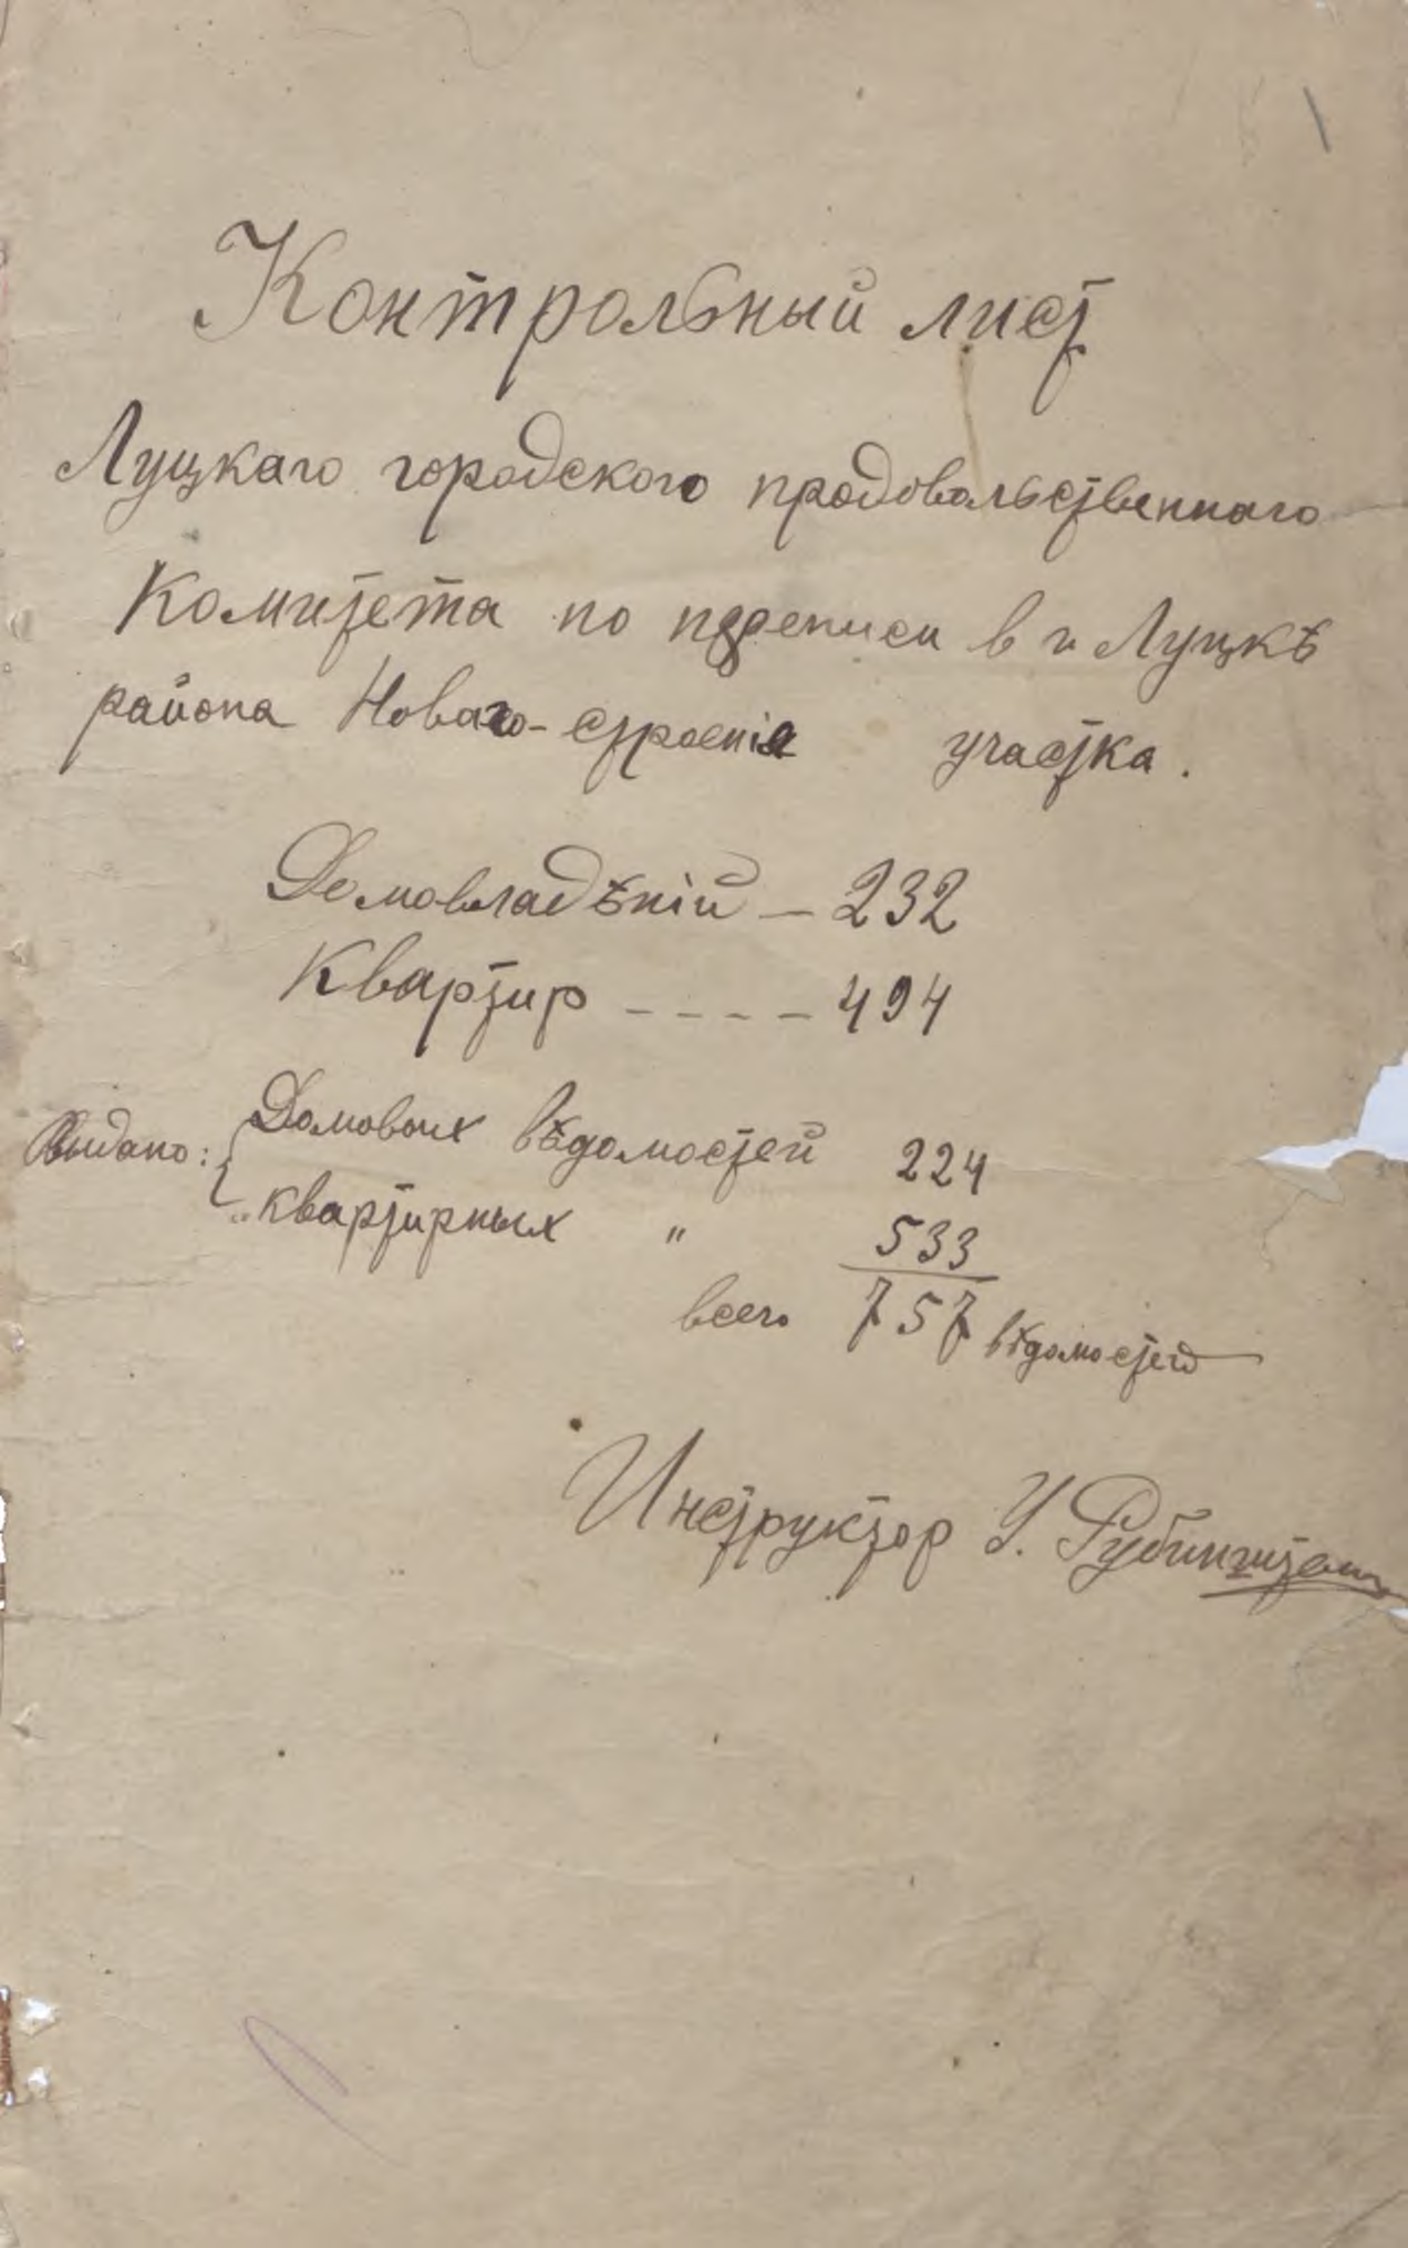 Контрольный лист
Луцкаго городского продовольственнаго
Комитета по переписи в г. Луцкѣ
района Новаго-строенія участка.
Домовладѣній — 232
Квартир - - - - 494
Выдано: { Домовых вѣдомостей 224
квартирных " 533
всего 757 вѣдомостей
Инструктор У.